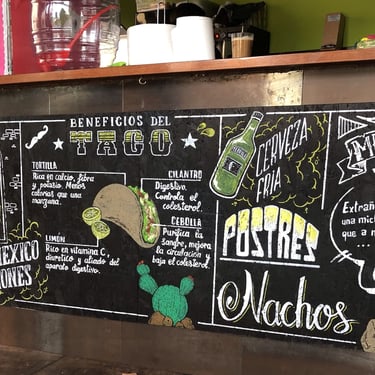 BENEFICIOS DEL
TACO
TORTILLA
Rica en calcio, fibra
y potasio. Menos
calorías que una
manzana.
CILANTRO
Digestivo.
Controla el
colesterol.
CEBOLLA
Purifica la
sangre, mejora
la circulación y
baja el colesterol.
LIMÓN
Rico en vitamina C,
diurético y aliado del
aparato digestivo.
MEXICO
CERVEZA
FRIA
POSTRES
Nachos
Extrañ
una mich
que a